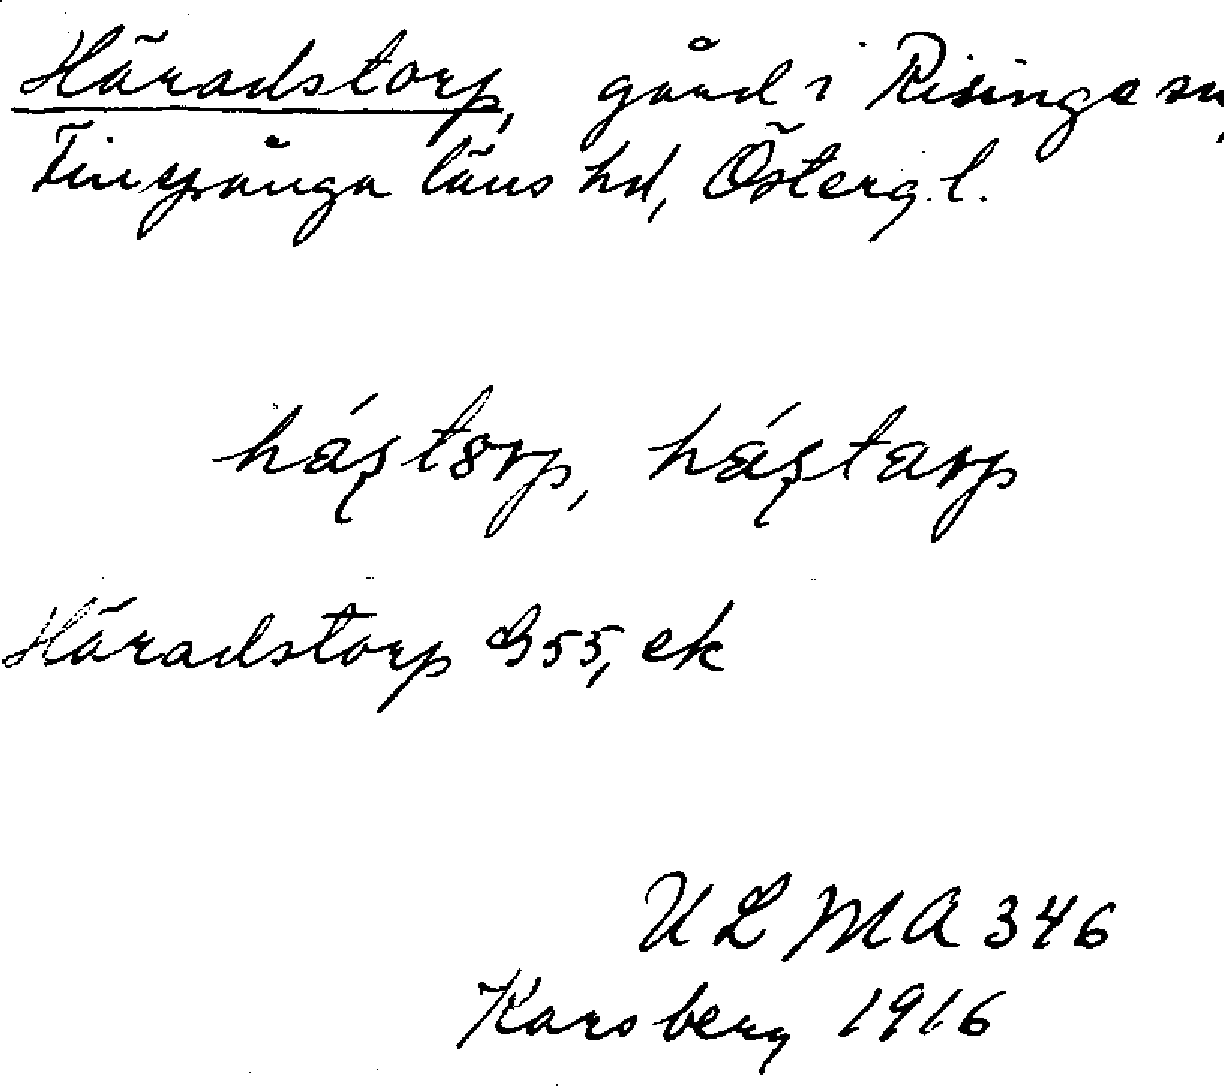 Häradstorp, gård i Risinge sn,
Finspånga läns hd, Österg. l.
Häradstorp G55, ek
ULMA 346
Karsberg 1916